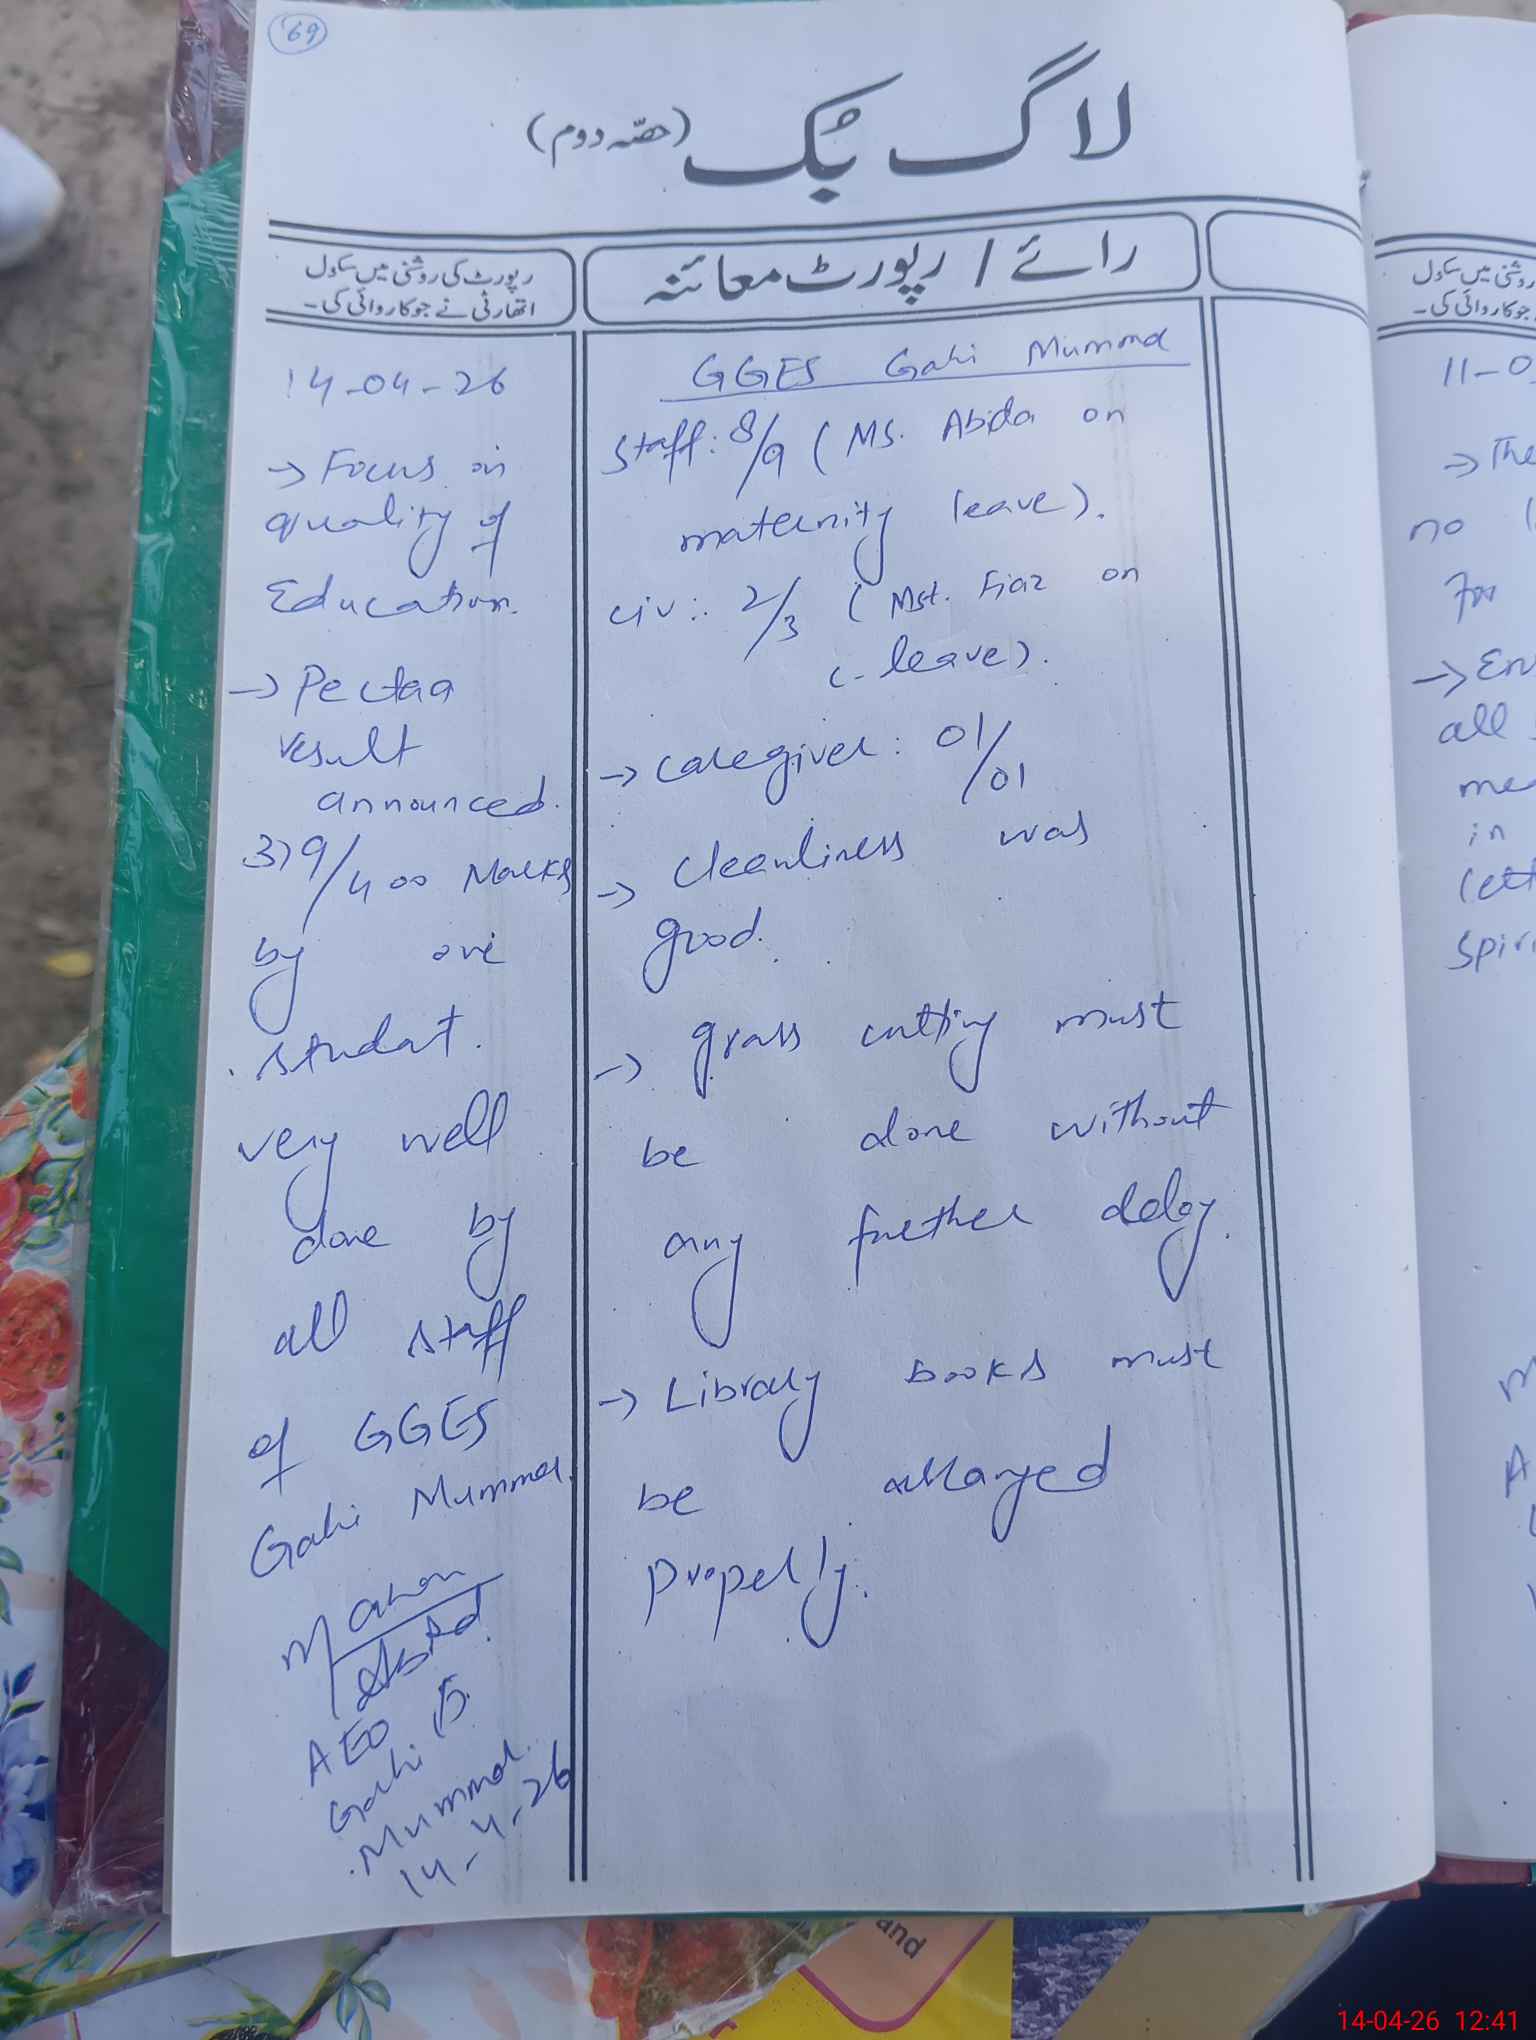 69
لاگ بُک (حصّہ دوم)
رائے / رپورٹ معائنہ
رپورٹ کی روشنی میں سکول
اتھارٹی نے جو کاروائی کی۔
GGES Gahi Mummar
Staff: 8/9 ( Ms. Abida on
maternity leave).
civ: 2/3 ( Mst. Fiaz on
c-leave).
→ caregiver: 01/01
→ cleanliness was
good.
→ grass cutting must
be done without
any further delay.
→ Library books must
be arranged
properly.
14-04-26
→ Focus on
quality of
Education.
→ Pectaa
result
announced.
379/400 Marks
by one
student.
very well
done by
all staff
of GGES
Gahi Mummar.
AEO
Gahi
Mummar.
14-4-26
روشنی میں سکول
جو کاروائی کی۔
11-0
→ The
no
For
→ En
all
me
in
lett
spir
and
14-04-26 12:41